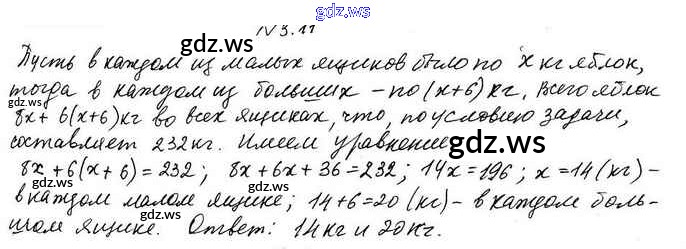 gdz.ws
IV 3.11
gdz.ws
Пусть в каждом из малых ящиков было по x кг яблок,
gdz.ws gdz.ws
тогда в каждом из больших – по (x+6) кг. Всего яблок
8x + 6(x+6) кг во всех ящиках, что, по условию задачи,
gdz.ws gdz.ws gdz.ws
составляет 232 кг. Имеем уравнение
8x + 6(x + 6) = 232; 8x + 6x + 36 = 232; 14x = 196; x = 14 (кг) –
gdz.ws gdz.ws
в каждом малом ящике; 14 + 6 = 20 (кг) – в каждом боль-
шом ящике. Ответ: 14 кг и 20 кг.
gdz.ws gdz.ws gdz.ws